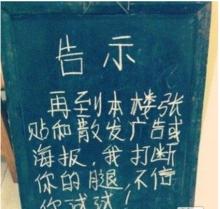 告示
再到本楼张
贴和散发广告或
海报,我打断
你的腿,不信
你试试!